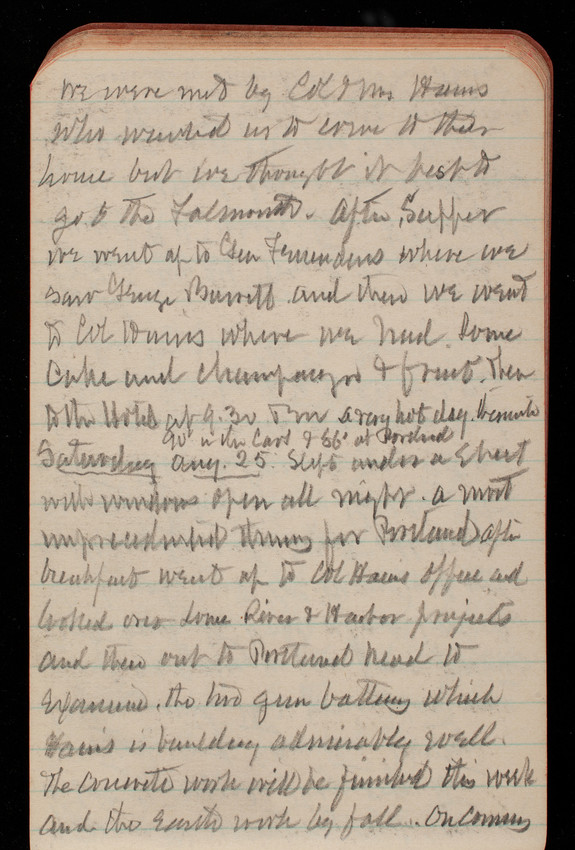 we were met by Col & Mrs Hains
who wanted us to come to their
home but we thought it best to
go to the Falmouth. After Supper
we went up to Gen Fessendens where we
saw George Burnett and then we went
to Col Hains where we had some
Cake and champagne & fruit. Then
to the Hotel at 9.30 a very hot day
90° in the Cars & 86° at Portland
Saturday Aug. 25. Slept under a sheet
with windows open all night. a most
unprecedented thing for Portland after
breakfast went up to Col Hains office and
looked over some River & Harbor projects
and then out to Portland head to
Examine the two gun battery which
Hains is building admirably well.
The concrete work will be finished this week
and the Earth work by fall. On coming